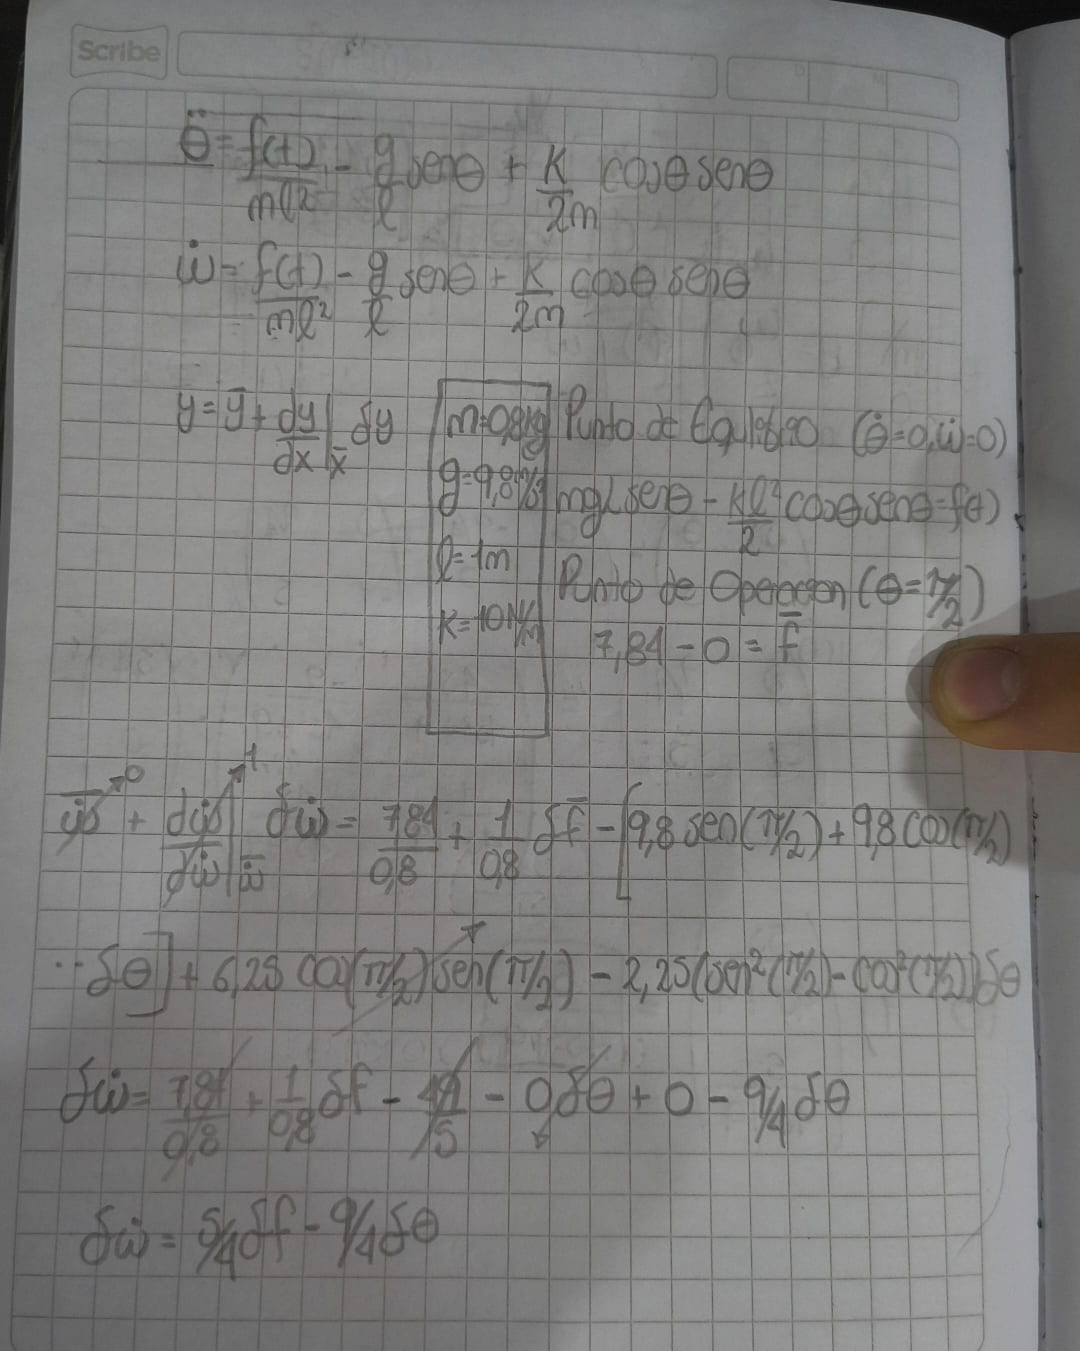 Scribe
θ̈ = f(t)/ml² - g/l senθ + K/2m cosθ senθ
ẇ = f(t)/ml² - g/l senθ + K/2m cosθ senθ
y = ȳ + dy/dx|x̄ δy
m=0,8kg
g=9,8m/s²
l=1m
K=10N/m
Punto de Equilibrio (θ̇=0, ẇ=0)
mgl senθ - Kl²/2 cosθ senθ = f(t)
Punto de Operacion (θ=π/2)
7,84 - 0 = f̄
ẇ + dẇ/dẇ|ẇ δẇ = 7,84/0,8 + 1/0,8 δf̄ - [9,8 sen(π/2) + 9,8 cos(π/2)
0
1
..δθ] + 6,25 cos(π/2) sen(π/2) - 2,25(sen²(π/2) - cos²(π/2))δθ
δẇ = 7,84/0,8 + 1/0,8 δf - 49/5 - 0δθ + 0 - 9/4 δθ
δẇ = 5/4 δf - 9/4 δθ